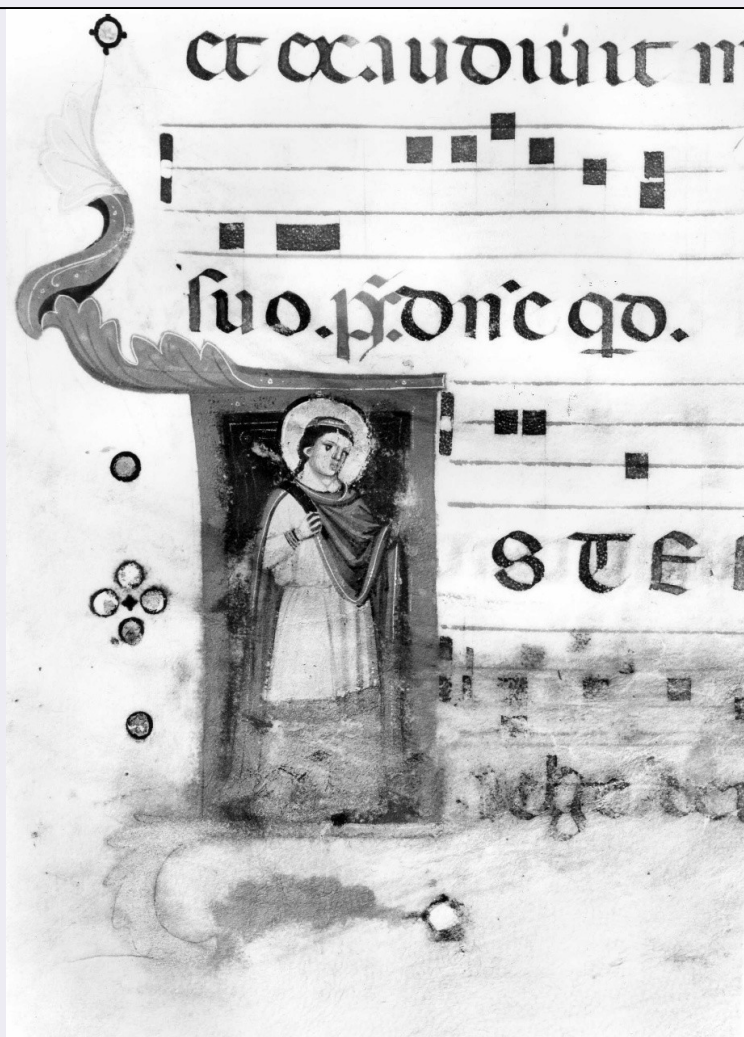 et exaudiuit
suo. ps. dn̄e qd.
ISTE